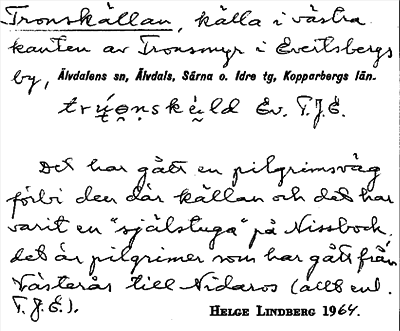 Tronskällan, källa i västra
kanten av Tronsmyr i Evertsbergs
by, Älvdalens sn, Älvdals, Särna o. Idre tg, Kopparbergs län.
Ev. T.J.E.
Det har gått en pilgrimsväg
förbi den där källan och det har
varit en "själstuga" på Nissbock.
det är pilgrimer som har gått från
Västerås till Nidaros (allt enl.
T.J.E.). HELGE LINDBERG 1964.